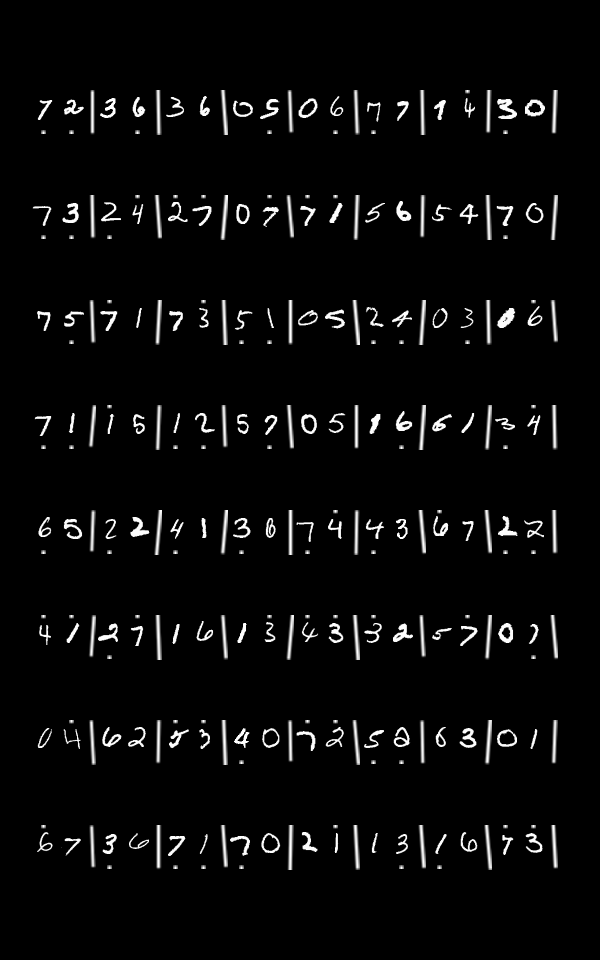 7 2 | 3 6 | 3 6 | 0 5 | 0 6 | 7 7 | 1 4 | 3 0 |
7 3 | 2 4 | 2 7 | 0 7 | 7 1 | 5 6 | 5 4 | 7 0 |
7 5 | 7 1 | 7 3 | 5 1 | 0 5 | 2 4 | 0 3 | 0 6 |
7 1 | 1 5 | 1 2 | 5 7 | 0 5 | 1 6 | 6 1 | 3 4 |
6 5 | 2 2 | 4 1 | 3 6 | 7 4 | 4 3 | 6 7 | 2 2 |
4 1 | 2 7 | 1 6 | 1 3 | 4 3 | 3 2 | 5 7 | 0 7 |
0 4 | 6 2 | 5 3 | 4 0 | 7 2 | 5 2 | 6 3 | 0 1 |
6 7 | 3 6 | 7 1 | 7 0 | 2 1 | 1 3 | 1 6 | 7 3 |